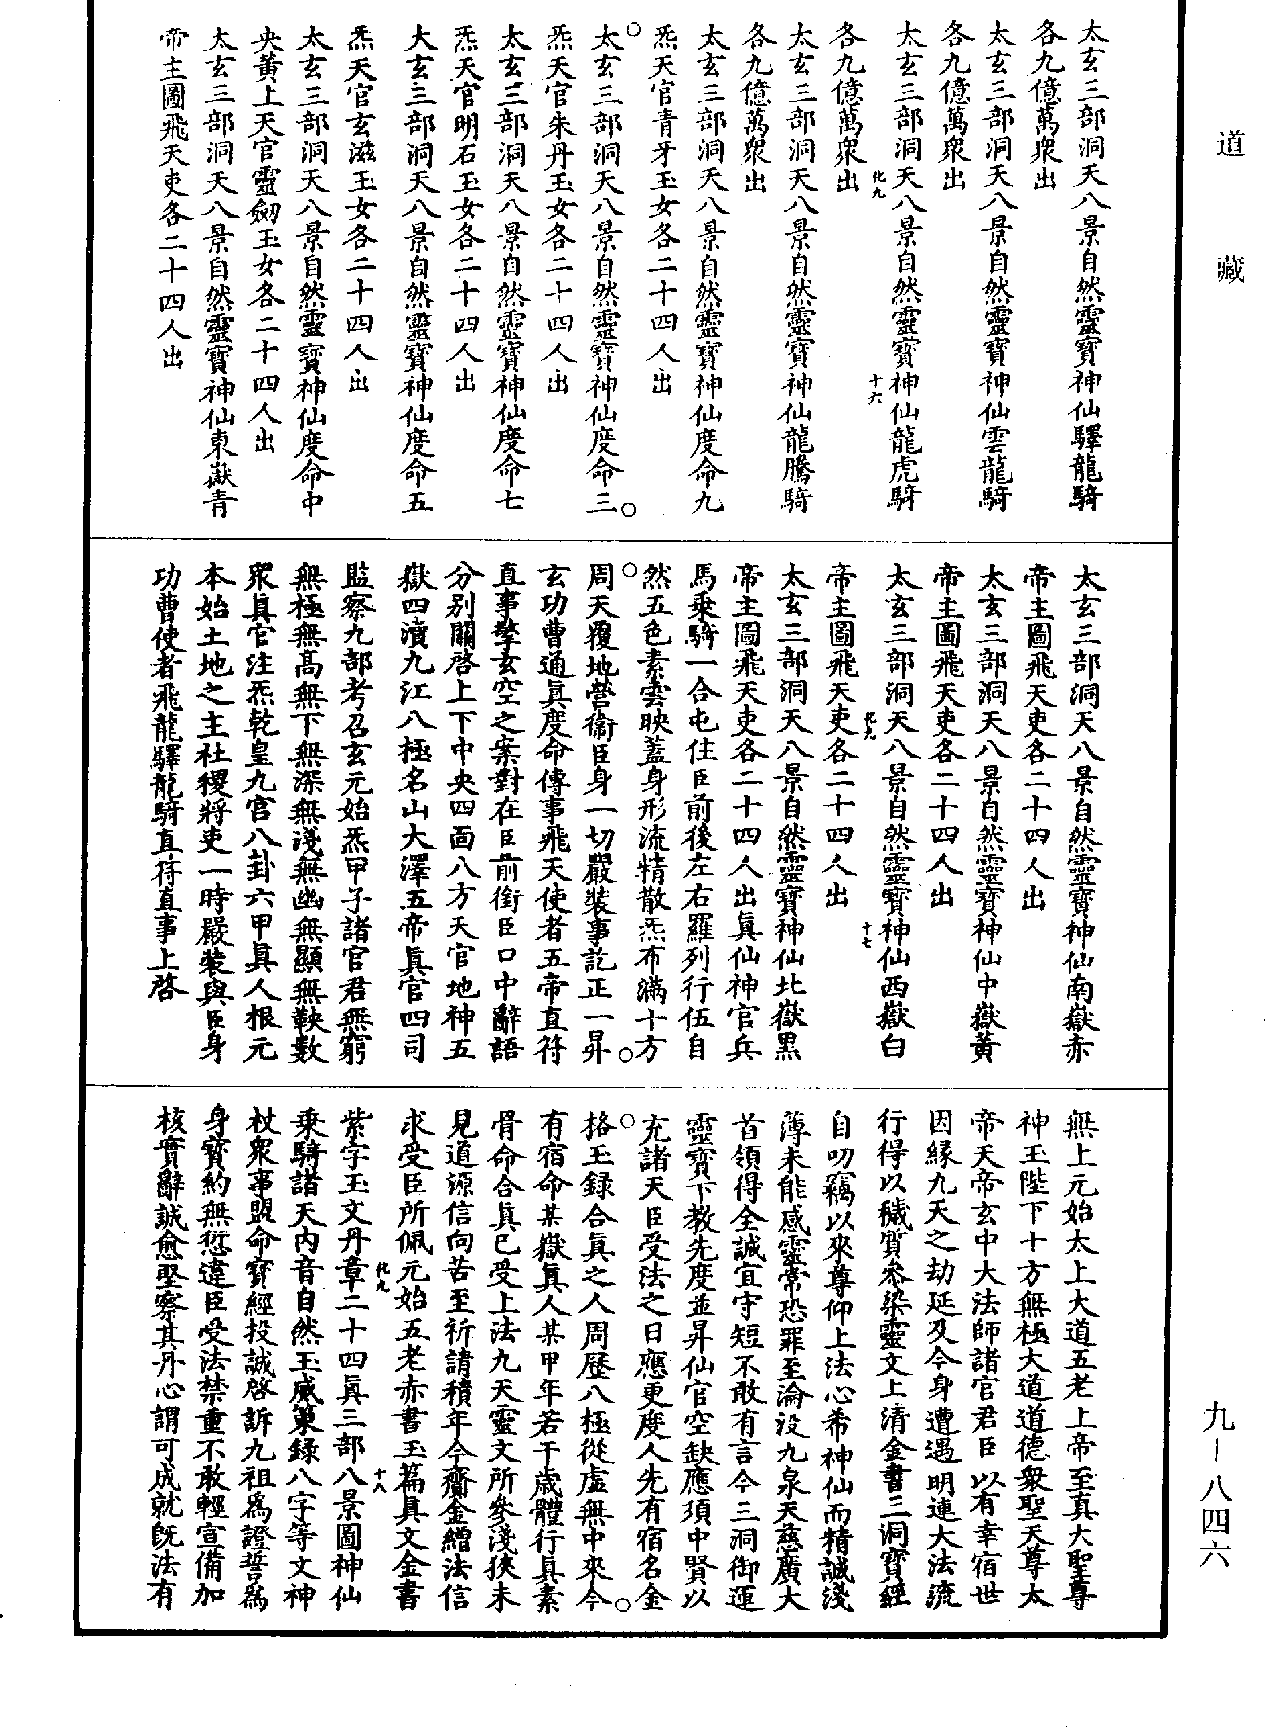 道藏
太玄三部洞天八景自然靈寶神仙驛龍騎
各九億萬衆出
太玄三部洞天八景自然靈寶神仙雲龍騎
各九億萬衆出
太玄三部洞天八景自然靈寶神仙龍虎騎
化九 十六
各九億萬衆出
太玄三部洞天八景自然靈寶神仙龍騰騎
各九億萬衆出
太玄三部洞天八景自然靈寶神仙度命九
炁天官青牙玉女各二十四人出
太玄三部洞天八景自然靈寶神仙度命三
炁天官朱丹玉女各二十四人出
太玄三部洞天八景自然靈寶神仙度命七
炁天官明石玉女各二十四人出
太玄三部洞天八景自然靈寶神仙度命五
炁天官玄滋玉女各二十四人出
太玄三部洞天八景自然靈寶神仙度命中
央黃上天官靈劒玉女各二十四人出
太玄三部洞天八景自然靈寶神仙東嶽青
帝主圖飛天吏各二十四人出
太玄三部洞天八景自然靈寶神仙南嶽赤
帝主圖飛天吏各二十四人出
太玄三部洞天八景自然靈寶神仙中嶽黃
帝主圖飛天吏各二十四人出
太玄三部洞天八景自然靈寶神仙西嶽白
化九 十七
帝主圖飛天吏各二十四人出
太玄三部洞天八景自然靈寶神仙北嶽黑
帝主圖飛天吏各二十四人出真仙神官兵
馬乘騎一合屯住臣前後左右羅列行伍自
然五色素雲映蓋身形流精散炁布滿十方
周天覆地營衛臣身一切嚴裝事訖正一昇
玄功曹通真度命傳事飛天使者五帝直符
直事擎玄空之案對在臣前銜臣口中辭語
分别關啓上下中央四面八方天官地神五
嶽四瀆九江八極名山大澤五帝真官四司
監察九部考召玄元始炁甲子諸官君無窮
無極無高無下無深無淺無幽無顯無鞅數
衆真官注炁乾皇九宫八卦六甲真人根元
本始土地之主社稷將吏一時嚴裝與臣身
功曹使者飛龍驛龍騎直符直事上啓
無上元始太上大道五老上帝至真大聖尊
神玉陛下十方無極大道道德衆聖天尊太
帝天帝玄中大法師諸官君臣以有幸宿世
因緣九天之劫延及今身遭遇明運大法流
行得以穢質叅染靈文上清金書三洞寶經
自叨竊以來尊仰上法心希神仙而精誠淺
薄未能感靈常恐罪至淪没九泉天慈廣大
首領得全誠宜守短不敢有言今三洞御運
靈寶下教先度並昇仙官空缺應須中賢以
充諸天臣受法之日應更度人先有宿名金
格玉錄合真之人周歷八極從虛無中來今
有宿命某嶽真人某甲年若干歲體行真素
骨命合真已受上法九天靈文所叅淺狹未
見道源信向苦至祈請積年今齎金繒法信
求受臣所佩元始五老赤書玉篇真文金書
紫字玉文丹章二十四真三部八景圖神仙
化九 十八
乘騎諸天内音自然玉威策錄八字等文神
杖衆事盟命寶經投誠啓訴九祖爲證誓爲
身寶約無愆違臣受法禁重不敢輕宣備加
核實辭誠愈堅察其丹心謂可成就旣法有
九—八四六